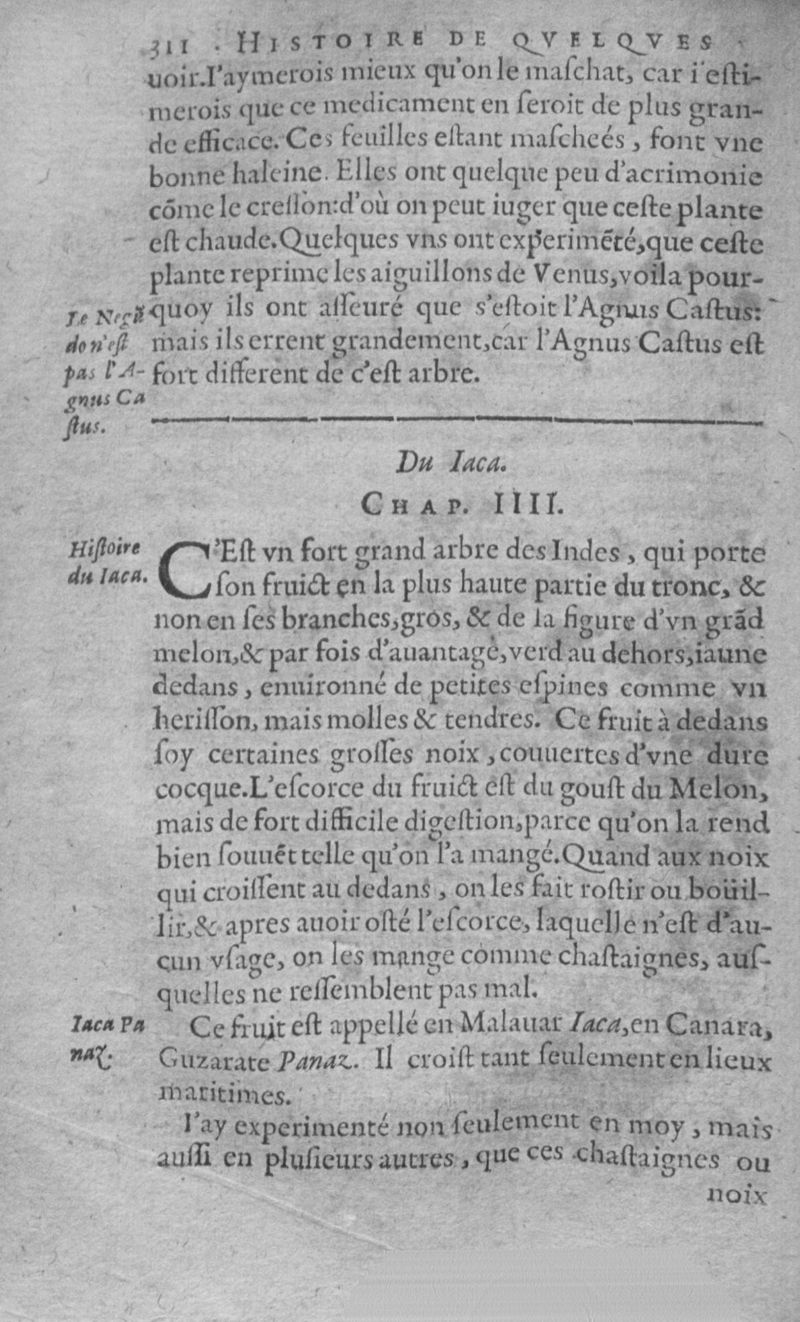 311 . HISTOIRE DE QVELQVES
uoir.I'aymerois mieux qu'on le maſchat, car i'eſti-
merois que ce medicament en ſeroit de plus gran-
de efficace. Ces feuilles eſtant maſcheés, font vne
bonne haleine. Elles ont quelque peu d'acrimonie
cõme le creſſon:d'où on peut iuger que ceſte plante
eſt chaude.Quelques vns ont experimẽté,que ceſte
plante reprime les aiguillons de Venus,voila pour-
quoy ils ont aſſeuré que s'eſtoit l'Agnus Caſtus:
mais ils errent grandement,car l'Agnus Caſtus eſt
fort different de c'eſt arbre.
Le Negũ
do n'eſt
pas l'A-
gnus Ca
ſtus.
Du Iaca.
CHAP. IIII.
Hiſtoire
du Iaca.
C'Eſt vn fort grand arbre des Indes, qui porte
ſon fruict en la plus haute partie du tronc, &
non en ſes branches,gros, & de la figure d'vn grãd
melon,& par fois d'auantage,verd au dehors,iaune
dedans, enuironné de petites eſpines comme vn
heriſſon, mais molles & tendres. Ce fruit à dedans
ſoy certaines groſſes noix, couuertes d'vne dure
cocque.L'eſcorce du fruict eſt du gouſt du Melon,
mais de fort difficile digeſtion,parce qu'on la rend
bien ſouuẽt telle qu'on l'a mangé.Quand aux noix
qui croiſſent au dedans, on les fait roſtir ou boüil-
lir,& apres auoir oſté l'eſcorce, laquelle n'eſt d'au-
cun vſage, on les mange comme chaſtaignes, auſ-
quelles ne reſſemblent pas mal.
Iaca Pa
naz.
Ce fruit eſt appellé en Malauar Iaca,en Canara,
Guzarate Panaz. Il croiſt tant ſeulement en lieux
maritimes.
I'ay experimenté non ſeulement en moy, mais
auſſi en pluſieurs autres, que ces chaſtaignes ou
noix